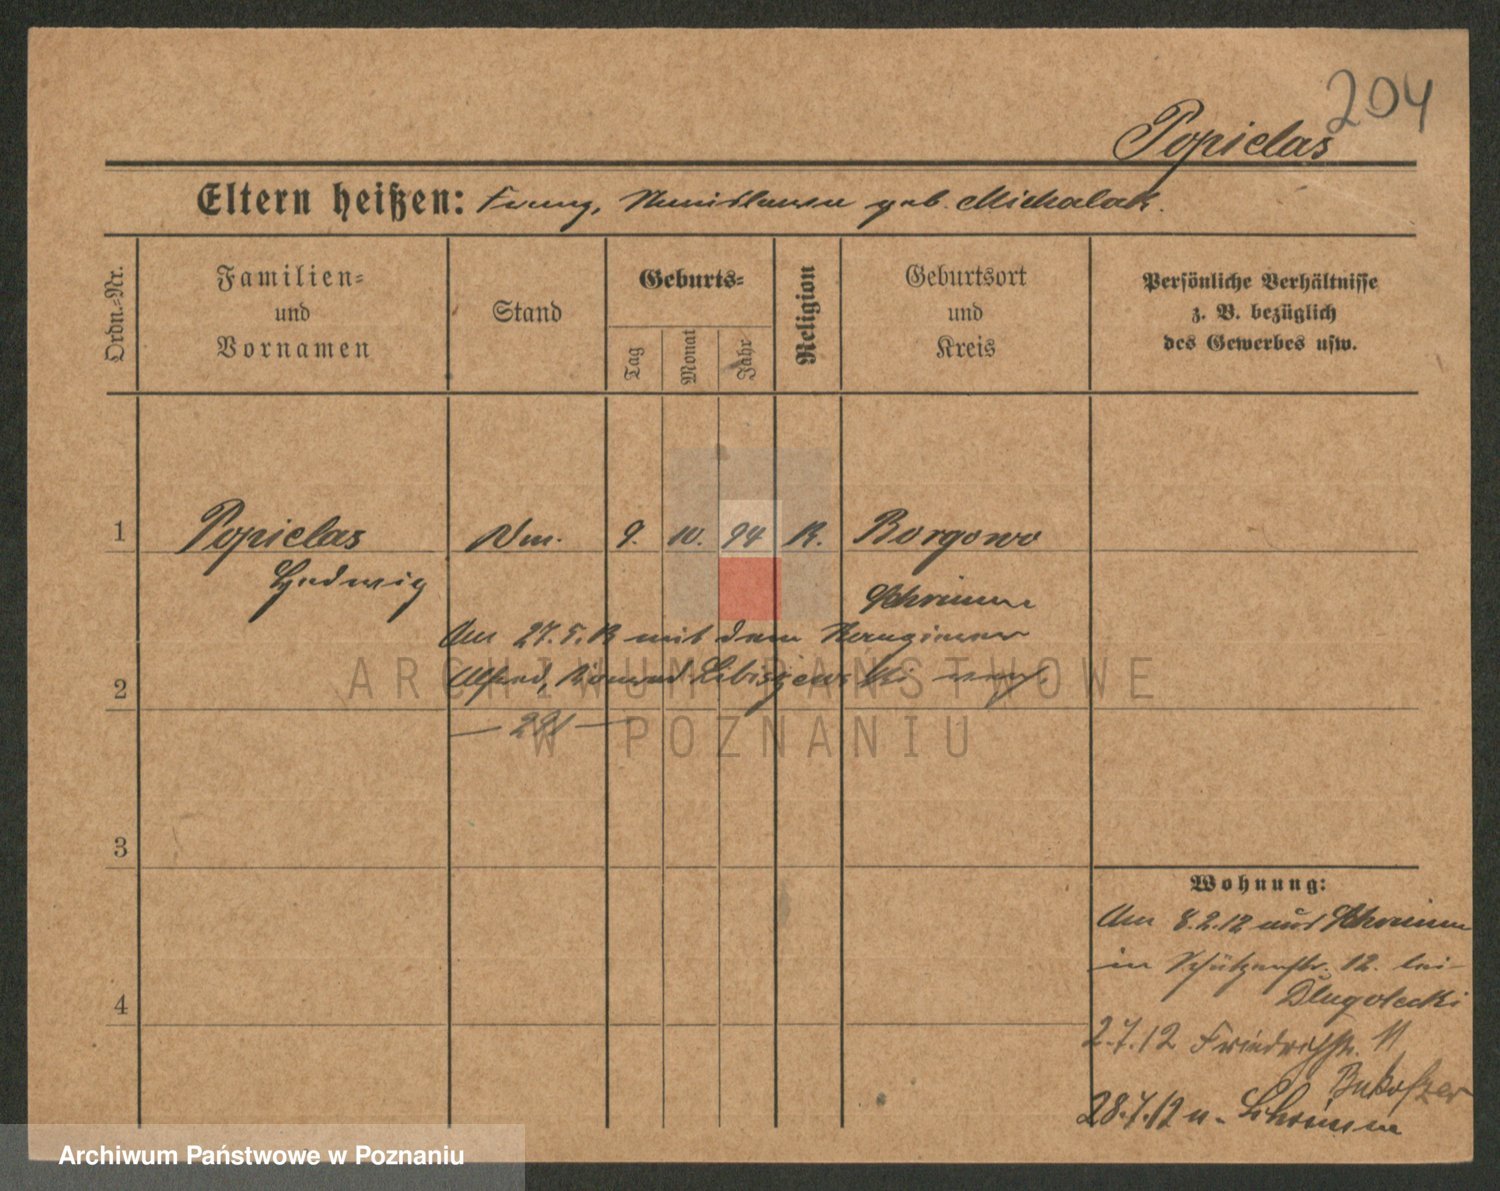 204
Popielas
Eltern heißen: Franz, Stanislawa geb. Michalak.
Ordn.-Nr.
Familien-
und
Vornamen
Stand
Geburts-
Tag
Monat
Jahr
Religion
Geburtsort
und
Kreis
Persönliche Verhältnisse
z. B. bezüglich
des Gewerbes usw.
1
Popielas
Hedwig
9. 10. 94
K.
Borgowo
Schrimm
Am 27.5.13 mit dem
Alfred, Libiszewski
2
3
4
Wohnung:
Am 8.2.12 aus Schrimm
in Schützenstr. 12. bei
Dlugolecki
2.7.12 Friedrichstr. 11
28.7.12 n. Schrimm
ARCHIWUM PAŃSTWOWE
W POZNANIU
Archiwum Państwowe w Poznaniu